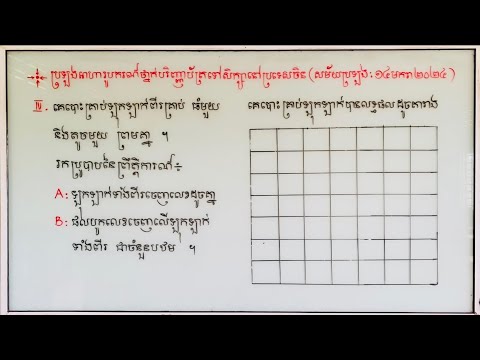 ប្រឡងអាហារូបករណ៍ថ្នាក់បរិញ្ញាប័ត្រទៅសិក្សានៅប្រទេសចិន (សម័យប្រឡង: ១៤មករា២០២៤)
IV. គេបោះគ្រាប់ឡុកឡាក់ពីរគ្រាប់ ធំមួយ
និងតូចមួយ ព្រមគ្នា ។
រកប្រូបាបនៃព្រឹត្តិការណ៍÷
A: ឡុកឡាក់ទាំងពីរចេញលេខដូចគ្នា
B: ផលបូកលេខចេញលើឡុកឡាក់
ទាំងពីរ ជាចំនួនបឋម ។
គេបោះ គ្រាប់ឡុកឡាក់បានលទ្ធផល ដូចតារាង